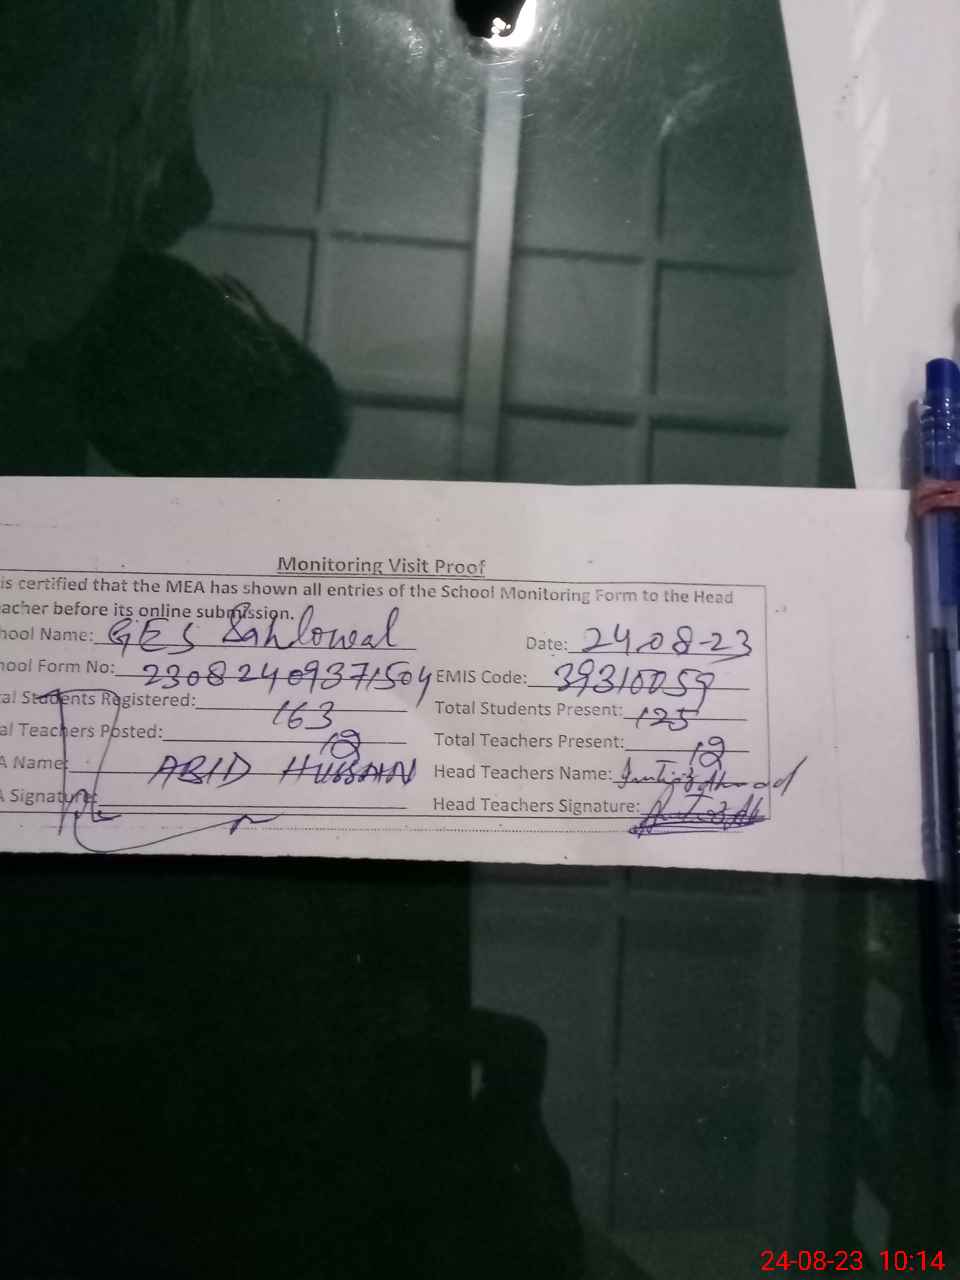 Monitoring Visit Proof
is certified that the MEA has shown all entries of the School Monitoring Form to the Head
acher before its online submission.
hool Name: GES Sahlowal Date: 24-08-23
hool Form No: 23082409371504 EMIS Code: 39310059
al Students Registered: 163 Total Students Present: 125
al Teachers Posted: Total Teachers Present:
A Name: ABID HUSSAIN Head Teachers Name: Imtiaz Ahmad
A Signature: Head Teachers Signature:
24-08-23 10:14